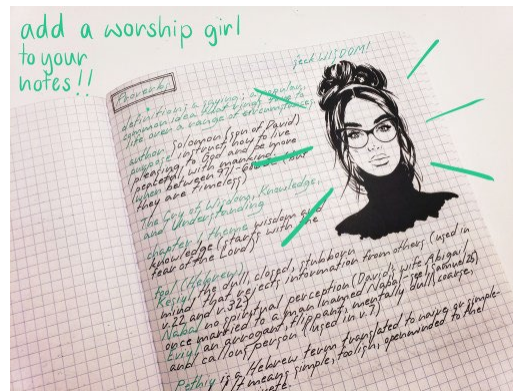 add a worship girl
to your
notes!!
seek WISDOM!
Proverbs
definition: a saying, a popular,
common idea that rings true to
life over a range of circumstances
author Solomon (son of David)
purpose instruct how to live
pleasing to God and be more
peaceful with mankind.
when between 971- (but
they are timeless)
The Cry of Wisdom, Knowledge,
and Understanding
chapter 1 theme wisdom and
knowledge (starts with the
fear of the Lord)
fool (Hebrew)
Kesiyl, the dull, closed, stubborn
mind that rejects information from others (used in
v.22 and v.32)
Nabal no spiritual perception (David's wife Abigail
once married to a man named Nabal - see 1 Samuel 25)
Eviyl an arrogant, flippant, mentally dull, coarse,
and callous person (used in v.7)
Pethiy is a Hebrew term translated to naive or simple-
It means simple, foolish, openminded to the